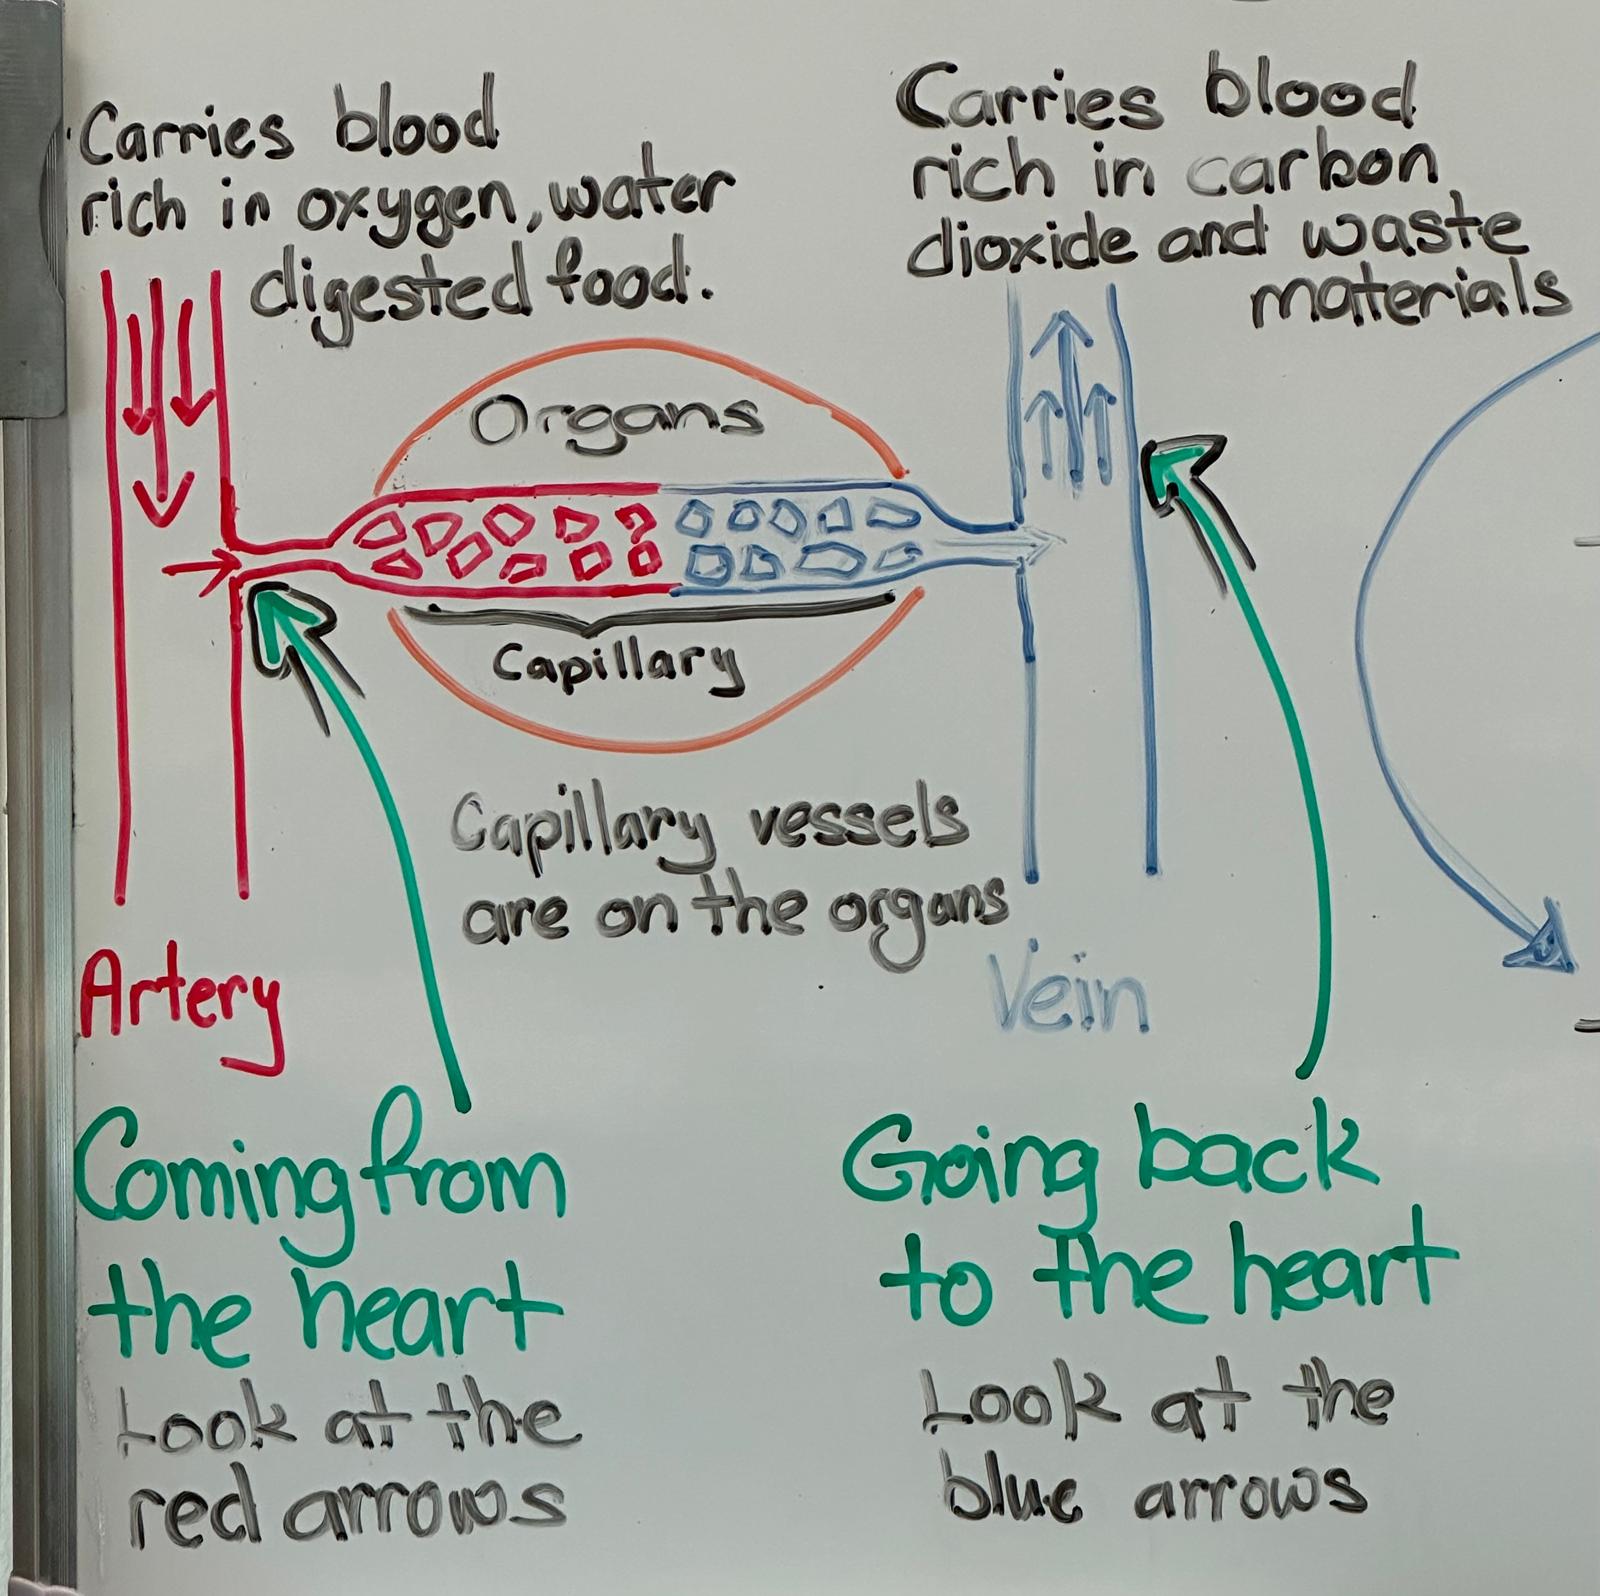 Carries blood
rich in oxygen, water
digested food.
Carries blood
rich in carbon
dioxide and waste
materials
Organs
Capillary
Capillary vessels
are on the organs
Artery
Vein
Coming from
the heart
Look at the
red arrows
Going back
to the heart
Look at the
blue arrows